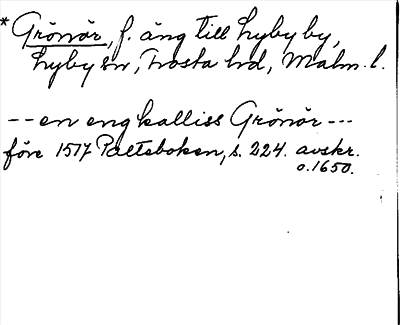 * Grönör, f. äng till Hyby by,
Hyby sn, Torsta hd, Malm. l.
-- en eng kalliss Grönör ---
före 1517 Palteboken, s. 224. avskr.
o. 1650.